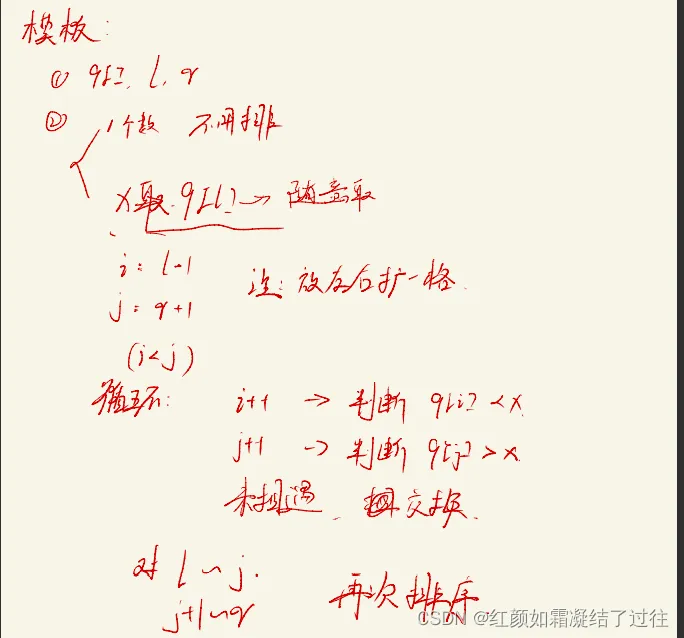 模板:
① q[], l, r
② 1个数 不用排
x取 q[l] → 随意取
i = l-1
j = r+1
注: 放左右扩一格.
(i<j)
循环: i++ → 判断 q[i] < x
j++ → 判断 q[j] > x
未相遇, 交换.
对 l ~ j.
j+1 ~ r
再次排序
CSDN @红颜如霜凝结了过往